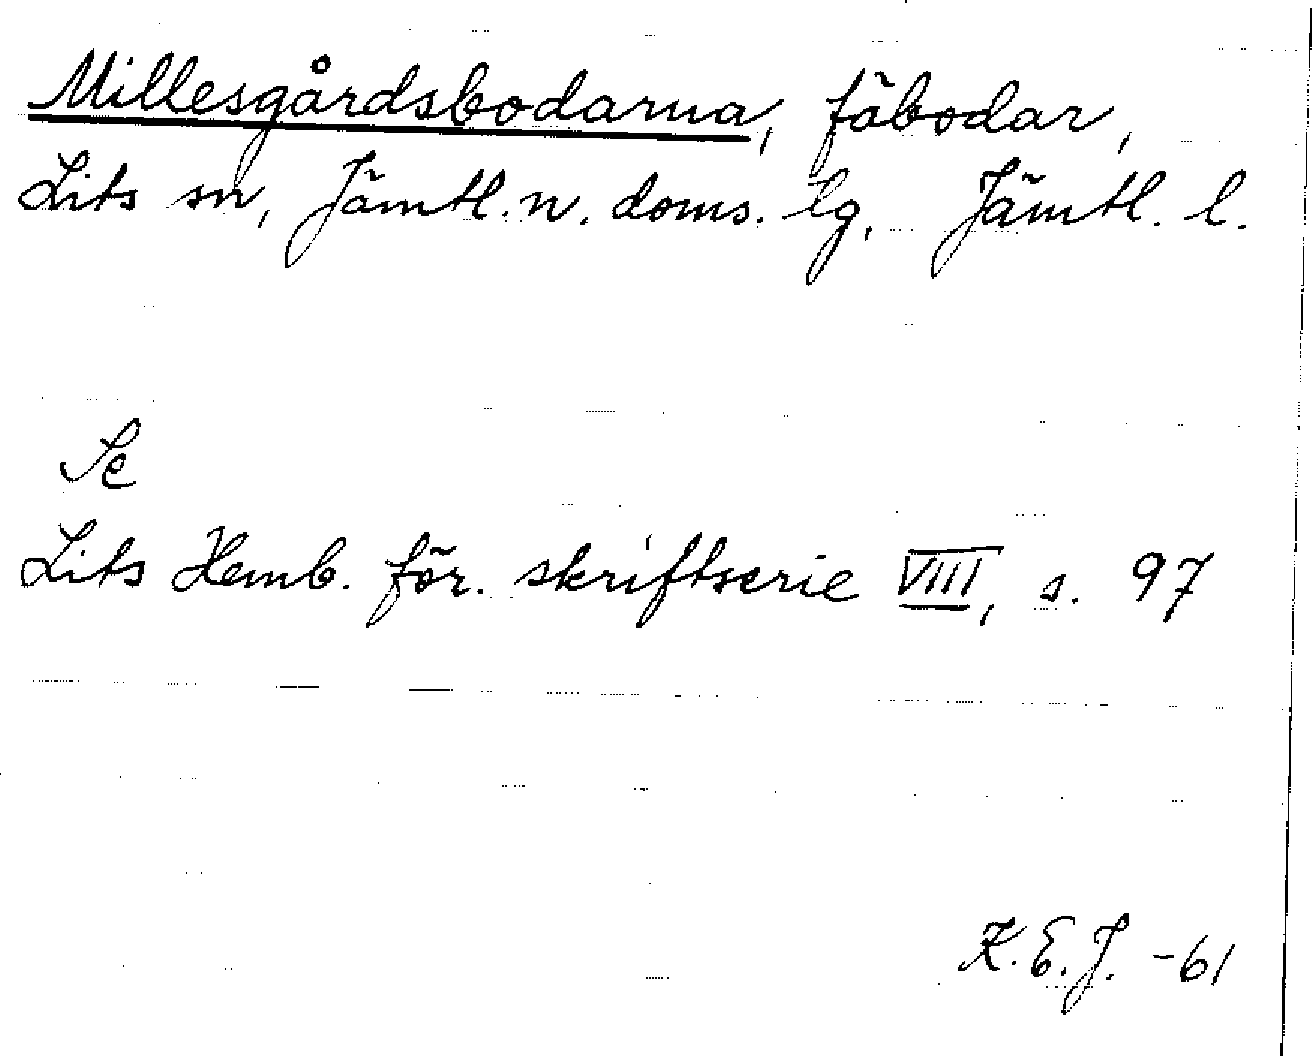 Millesgårdsbodarna, fäbodar,
Lits sn, Jämtl. n. doms. lg, Jämtl. l.
Se
Lits Hemb. för. skriftserie VIII, s. 97
K. E. J. -61